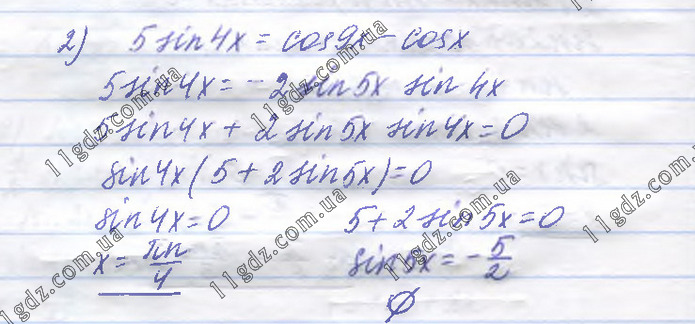 2) 5sin4x = cos9x - cosx
5sin4x = -2sin5x sin4x
5sin4x + 2sin5x sin4x = 0
sin4x(5 + 2sin5x) = 0
sin4x = 0 5 + 2sin5x = 0
x = πn/4 sin5x = -5/2
∅
11gdz.com.ua
11gdz.com.ua
11gdz.com.ua
11gdz.com.ua
11gdz.com.ua
11gdz.com.ua